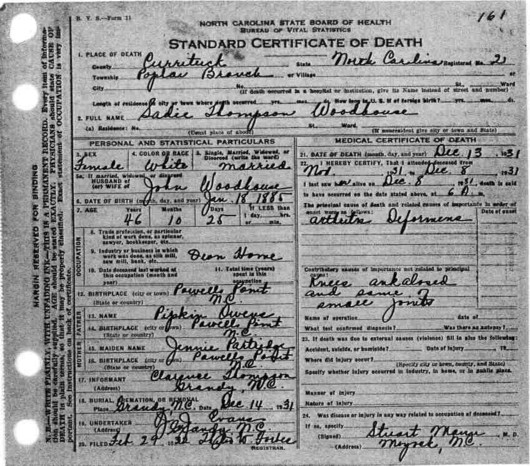 N. V. S.—Form 11
161
NORTH CAROLINA STATE BOARD OF HEALTH
BUREAU OF VITAL STATISTICS
STANDARD CERTIFICATE OF DEATH
1. PLACE OF DEATH
County Currituck State North Carolina Registered No. 2
Township Poplar Branch or Village
City No. St. Ward
(If death occurred in a hospital or institution, give its Name instead of street and number)
Length of residence in city or town where death occurred yrs. mos. ds. How long in U. S. if of foreign birth? yrs. mos. ds.
2. FULL NAME Sadie Thompson Woodhouse
(a) Residence: No. St. Ward
(Usual place of abode) (If nonresident give city or town and State)
PERSONAL AND STATISTICAL PARTICULARS
3. SEX 4. COLOR OR RACE 5. Single, Married, Widowed, or Divorced (write the word)
Female White Married
5a. If married, widowed, or divorced
HUSBAND of
(or) WIFE of John Woodhouse
6. DATE OF BIRTH (month, day, and year) Jan 18 1885
7. AGE Years Months Days If LESS than 1 day, hrs. or min.
46 10 25
8. Trade, profession, or particular kind of work done, as spinner, sawyer, bookkeeper, etc.
9. Industry or business in which work was done, as silk mill, saw mill, bank, etc. Own Home
10. Date deceased last worked at this occupation (month and year)
11. Total time (years) spent in this occupation
12. BIRTHPLACE (city or town) Powells Point
(State or country) N.C.
FATHER
13. NAME Pipkin Owens
14. BIRTHPLACE (city or town) Powells Point
(State or country) N.C.
MOTHER
15. MAIDEN NAME Jennie Partridge
16. BIRTHPLACE (city or town) Powells Point
(State or country) N.C.
17. INFORMANT Clarence Thompson
(Address) Grandy N.C.
18. BURIAL, CREMATION, OR REMOVAL
Place Grandy N.C. Date Dec 14 1931
19. UNDERTAKER
(Address) Grandy, N.C.
20. FILED Feb 29 1932
REGISTRAR.
MEDICAL CERTIFICATE OF DEATH
21. DATE OF DEATH (month, day, and year) Dec 13 1931
22. I HEREBY CERTIFY, That I attended deceased from
Nov. 1931 to Dec 8 1931
I last saw alive on Dec 8 1931, death is said
to have occurred on the date stated above, at
The principal cause of death and related causes of importance in order of onset were as follows: Date of onset
arthritis Deformens
Contributory causes of importance not related to principal cause:
Knees ankylosed
and some of
smaller joints
Name of operation date of
What test confirmed diagnosis? Was there an autopsy?
23. If death was due to external causes (violence) fill in also the following:
Accident, suicide, or homicide? Date of injury 19
Where did injury occur?
(Specify city or town, county, and State)
Specify whether injury occurred in industry, in home, or in public place.
Manner of injury
Nature of injury
24. Was disease or injury in any way related to occupation of deceased?
If so, specify
(Signed) Stuart , M. D.
(Address) Moyock, N.C.
MARGIN RESERVED FOR BINDING